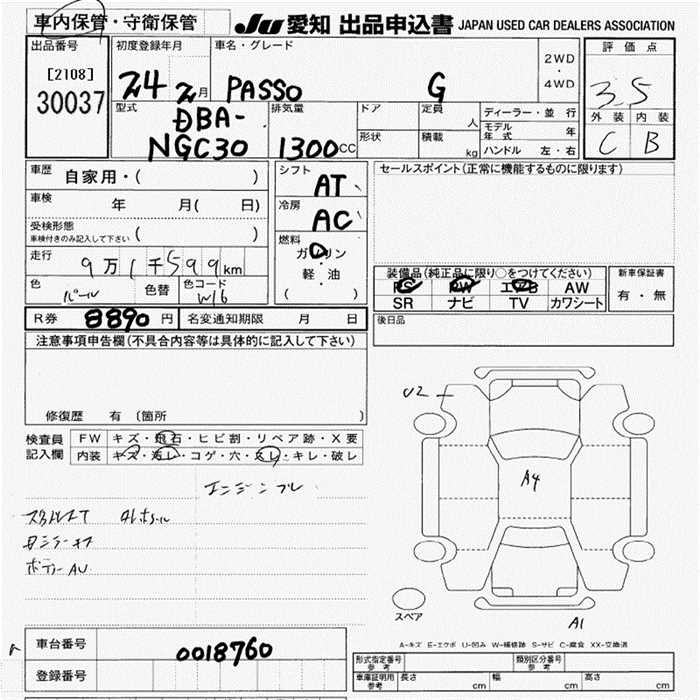 車内保管・守衛保管
JU 愛知 出品申込書 JAPAN USED CAR DEALERS ASSOCIATION
出品番号 初度登録年月 車名・グレード 評価点
[2108]
30037
24 2月 PASSO G 2WD・4WD
3.5
型式 排気量 ドア 定員 人 ディーラー・並行 外装 内装
DBA-
NGC30 1300cc 形状 積載 kg モデル年式 年
ハンドル 左・右 C B
車歴 自家用・( ) シフト AT セールスポイント(正常に機能するものに限ります)
車検 年 月( 日) 冷房 AC
受検形態 車検付きのみ記入して下さい ( ) 燃料
ガソリン・軽・油
( )
走行 9万1千599km
色 パール 色替 色コード W16
装備品(純正品に限り○をつけてください) 新車保証書
PS PW エアB AW 有・無
SR ナビ TV カワシート
R券 8890円 名変通知期限 月 日 後日品
注意事項申告欄(不具合内容等は具体的に記入して下さい)
修復歴 有 (箇所 )
検査員記入欄 FW キズ・飛石・ヒビ割・リペア跡・X要
内装 キズ・汚レ・コゲ・穴・スレ・キレ・破レ
U2
A4
A1
スペア
A-キズ E-エクボ U-凹み W-補修跡 S-サビ C-腐食 XX-交換済
車台番号 0018760
登録番号
形式指定番号 参考 類別区分番号 参考
車庫証明用 参考 長さ cm 幅 cm 高さ cm